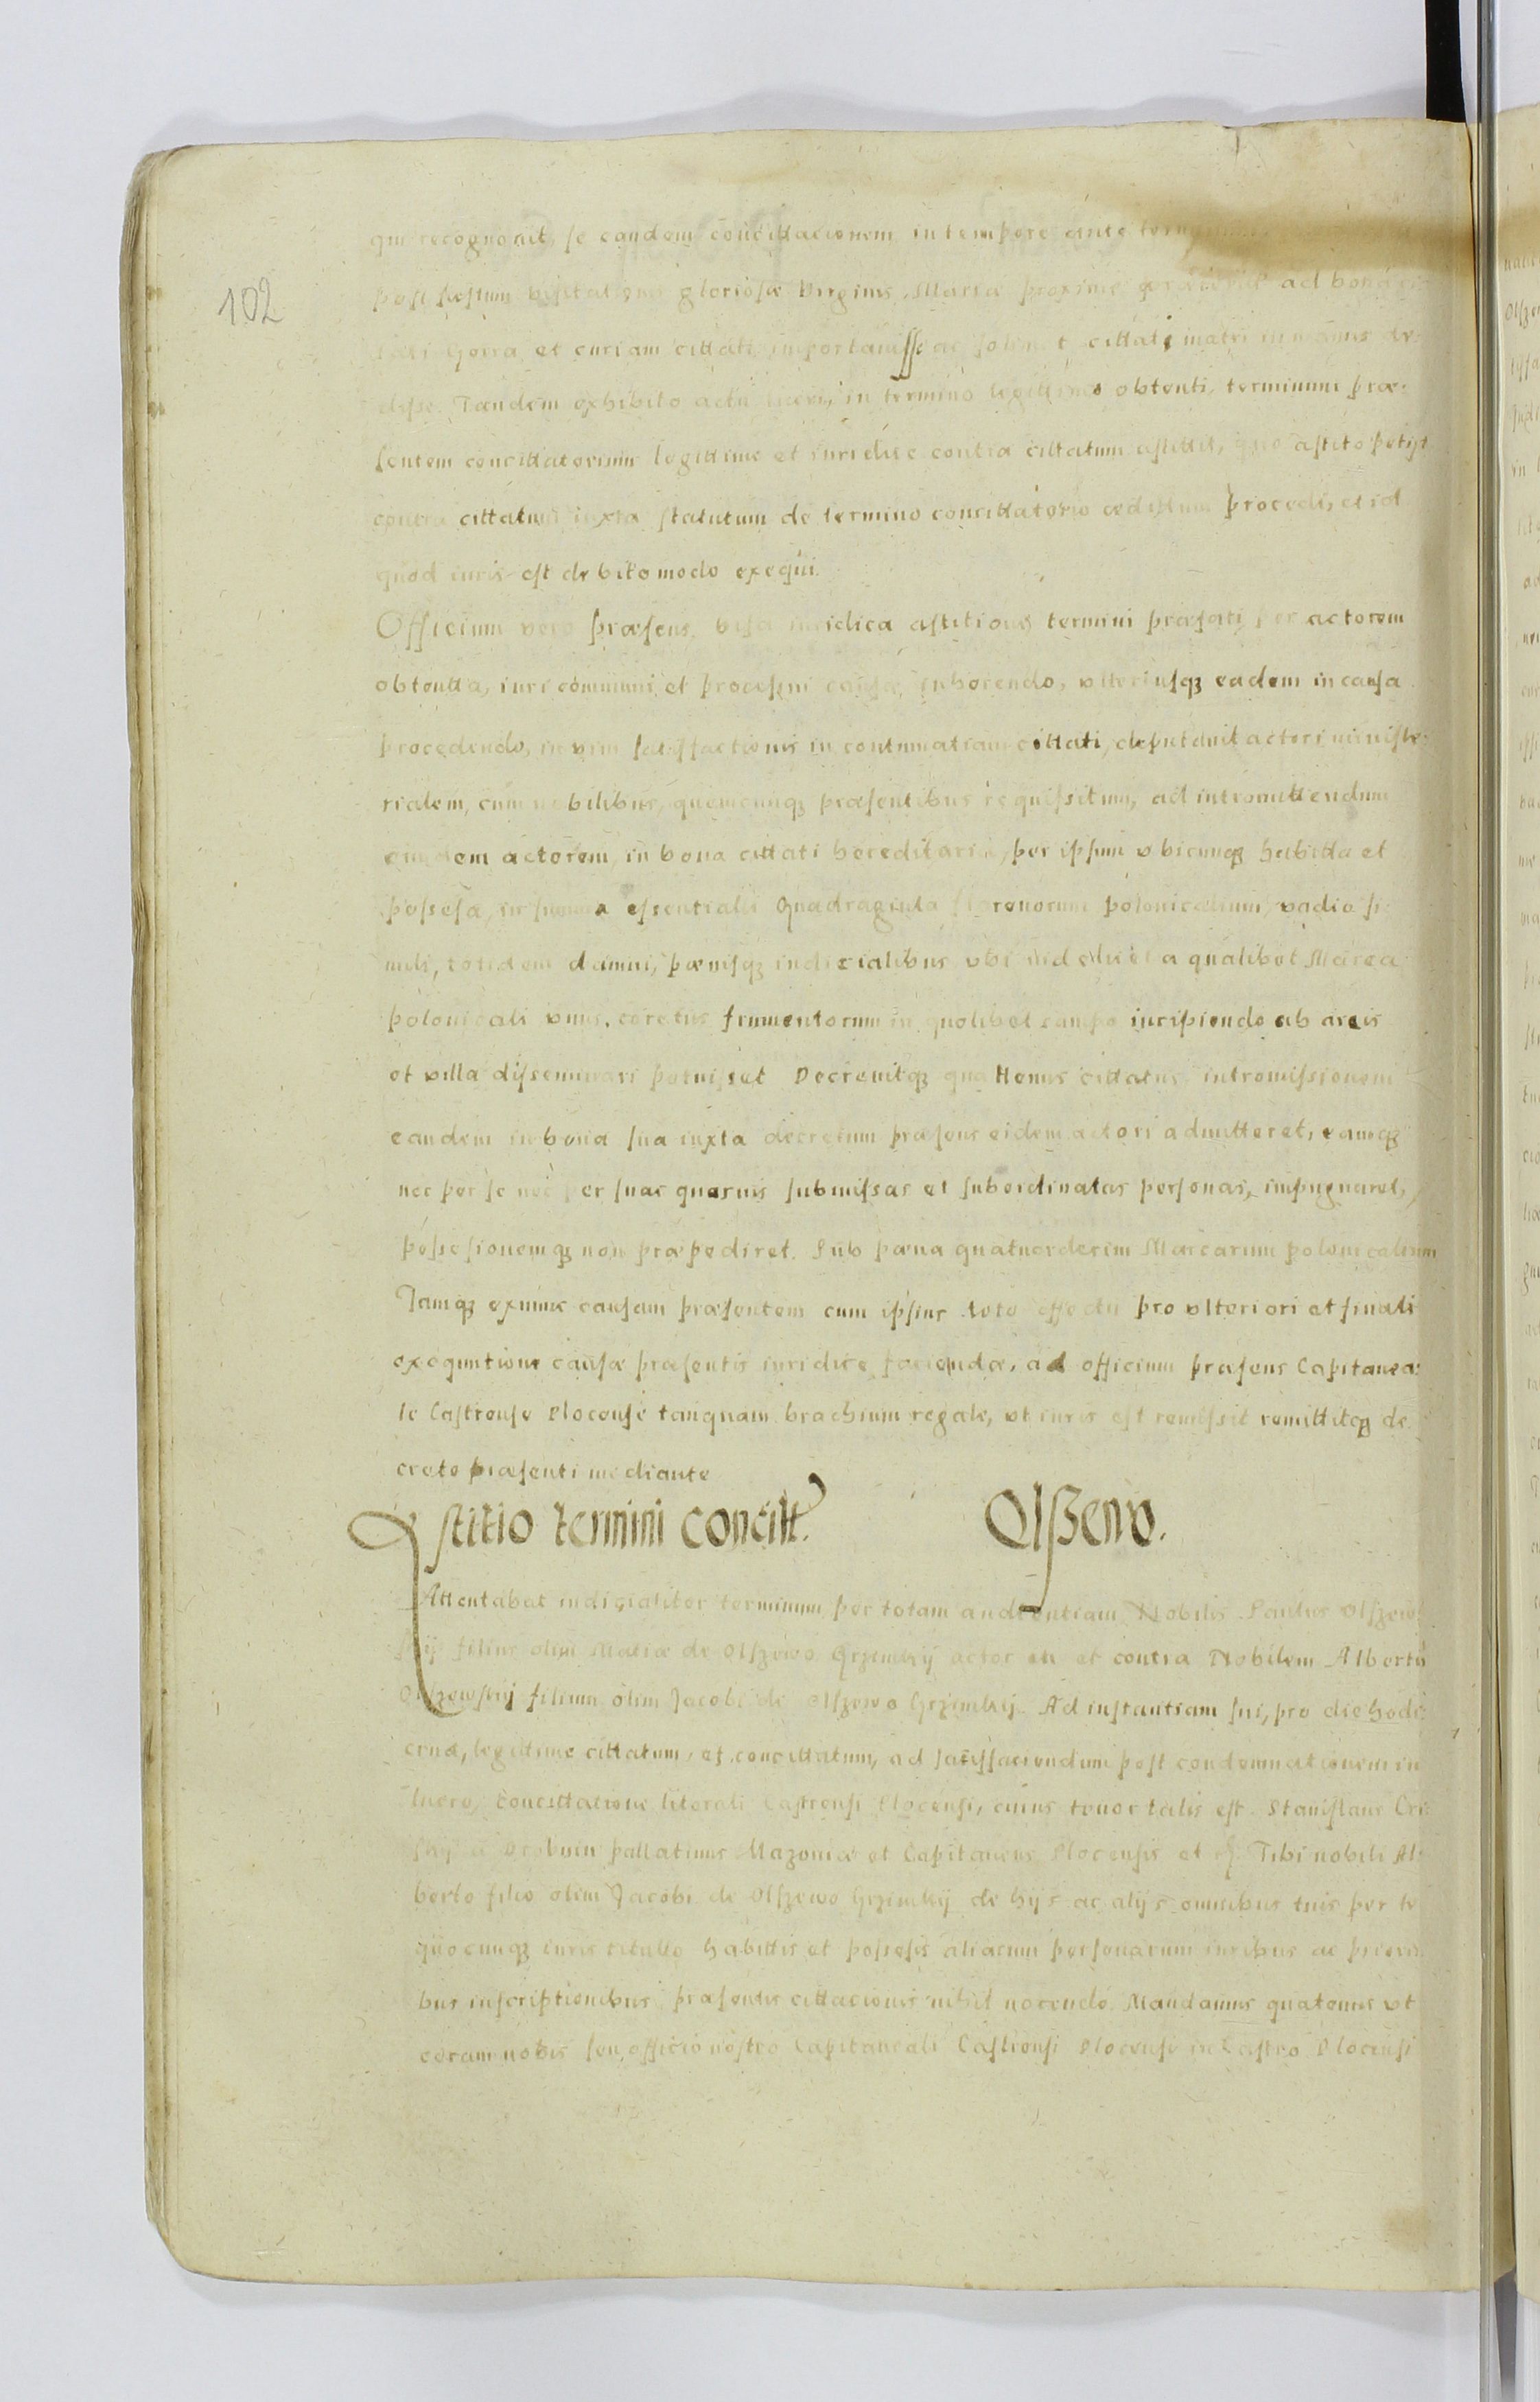 102
qui recognovit, se eandem concittacionem in tempore ante
post fæstum visitationis gloriosæ Virginis Mariæ proxime præteritum ad bona
Gorra et curiam cittati importavisse ac cittati matri in manus
Tandem exhibito actu lucri, in termino legittime obtenti, terminum præ:
sentem concittatorium legittime et iuridice contra cittatum astitit, quo astito petijt
contra cittatum iuxta statutum de termino concittatorio ædittum procedi, et id
quod iuris est debito modo exequi.
Officium vero præsens, visa iuridica astitione termini præfati per actorem
obtentta, iuri communi et processui causæ inherendo, ulteriusq3 eadem in causa
procedendo, in vim satisfactionis in contumatiam cittati, deputavit actori ministe:
rialem, cum nobilibus, quemcunq3 præsentibus requissitum, ad intromittendum
eundem actorem, in bona cittati hereditaria, per ipsum ubicunq3 habitta et
possessa, in summa essentialis Quadraginta florenorum polonicalium, vadio si:
mili, totidem damni, pænisq3 iudicialibus, ubi videlicet a qualibet Marca
polonicali unus coretus frumentorum in quolibet campo incipiendo ab areis
et villa disseminari potuisset Decrevitq3 quattenus cittatus intromissionem
eandem in bona sua iuxta decretum præsens eidem actori admitteret, eamq3
nec per se nec per suas quasvis submissas et subordinatas personas, impugnaret,
possesionemq3 non præpediret. Sub pæna quatuordecim Marcarum polonicalium
Jamq3 exnunc causam præsentem cum ipsius toto effectu pro ulteriori et finali
exequutione causæ præsentis iuridice facienda, ad officium præsens Capitanea:
le Castrense Plocense tanquam brachium regale, ut iuris est remissit remittitq3 de
creto præsenti mediante
Astitio termini concitt. Olszewo.
Attentabat iudicialiter terminum per totam audientiam Nobilis Paulus Olszew:
skij filius olim Matiæ de Olszewo Grzimkij actor in et contra Nobilem Albertū
Olszewskij filium olim Jacobi de Olszewo Grzimkij. Ad instantiam sui, pro die hodi:
erna, legittime cittatum, et concittatum, ad satisfaciendum post condemnationem in
lucro, Concittatione literali Castrensi Plocensi, cuius tenor talis est. Stanislaus Cri:
skij a Drobnin pallatinus Mazoviæ et Capitaneus Plocensis et c. Tibi nobili Al:
berto filio olim Jacobi de Olszewo Grzimkij de hijs ac alijs omnibus tuis per te
quocunq3 iuris titullo habittis et possessis aliarum personarum iuribus ac priori:
bus inscriptionibus præsentis cittacionis nihil nocendo. Mandamus quatenus ut
coram nobis seu officio nostro Capitaneali Castrensi Plocensi in Castro Plocensi